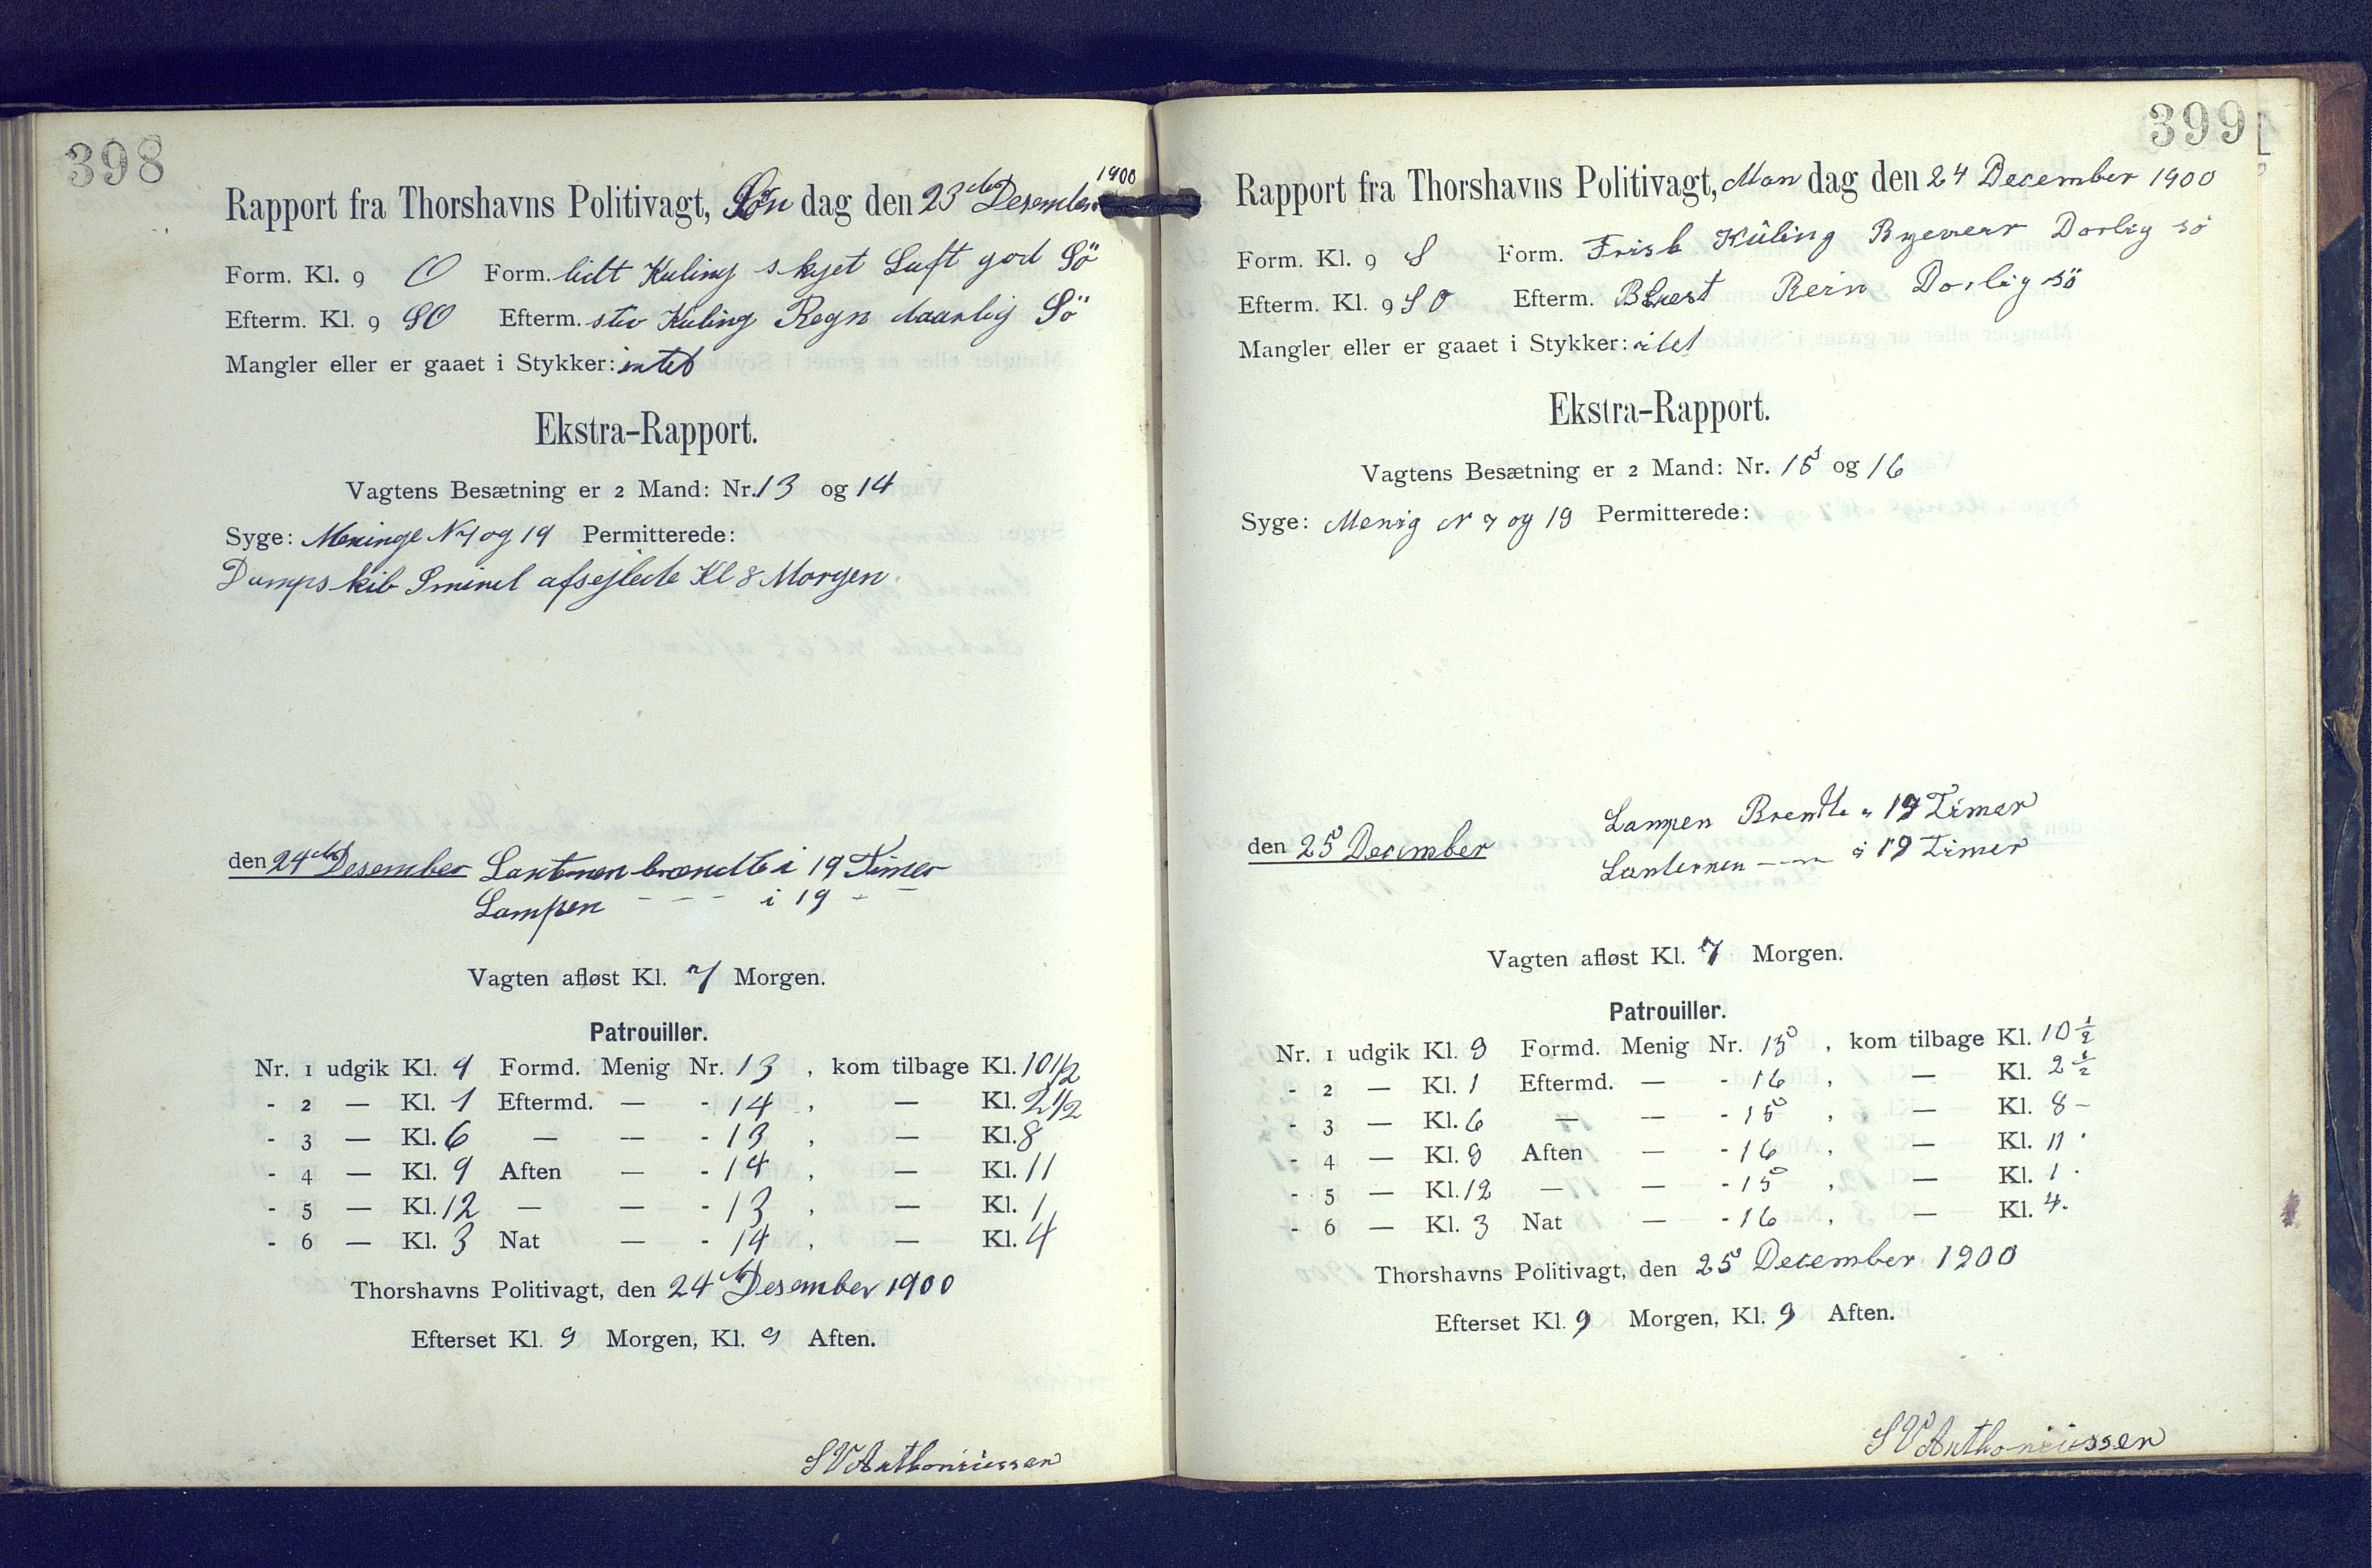 398
Rapport fra Thorshavns Politivagt, Søn dag den 23de Desember 1900
Form. Kl. 9 O Form. lidt Kuling skyet Luft god Sö
Efterm. Kl. 9 SO Efterm. stiv Kuling Regn daarlig Sö
Mangler eller er gaaet i Stykker: intet
Ekstra-Rapport.
Vagtens Besætning er 2 Mand: Nr. 13 og 14
Syge: Meninge N 7 og 19 Permitterede:
Dampskib Smiril afsejlede Kl 8 Morgen.
den 24de Desember Lanternen brændte i 19 Timer
Lampen - - - i 19 -
Vagten afløst Kl. 7 Morgen.
Patrouiller.
Nr. 1 udgik Kl. 9 Formd. Menig Nr. 13, kom tilbage Kl. 10 1/2
- 2 — Kl. 1 Eftermd. — - 14, — Kl. 2 1/2
- 3 — Kl. 6 — — - 13, — Kl. 8
- 4 — Kl. 9 Aften — - 14, — Kl. 11
- 5 — Kl. 12 — — - 13, — Kl. 1
- 6 — Kl. 3 Nat — - 14, — Kl. 4
Thorshavns Politivagt, den 24de Desember 1900
Efterset Kl. 9 Morgen, Kl. 9 Aften.
SV Anthoniussen
399
Rapport fra Thorshavns Politivagt, Man dag den 24 December 1900
Form. Kl. 9 S Form. Frisk Küling Byeveir Dorlig sö
Efterm. Kl. 9 SO Efterm. Blest Rein Dorlig sö
Mangler eller er gaaet i Stykker: itet
Ekstra-Rapport.
Vagtens Besætning er 2 Mand: Nr. 15 og 16
Syge: Menig N 7 og 19 Permitterede:
Lampen Brendte i 19 Timer
den 25 December
Lanternen — — i 19 Timer
Vagten afløst Kl. 7 Morgen.
Patrouiller.
Nr. 1 udgik Kl. 9 Formd. Menig Nr. 15, kom tilbage Kl. 10 1/2
- 2 — Kl. 1 Eftermd. — - 16, — Kl. 2 1/2
- 3 — Kl. 6 — — - 15, — Kl. 8 -
- 4 — Kl. 9 Aften — - 16, — Kl. 11
- 5 — Kl. 12 — — - 15, — Kl. 1
- 6 — Kl. 3 Nat — - 16, — Kl. 4.
Thorshavns Politivagt, den 25 December 1900
Efterset Kl. 9 Morgen, Kl. 9 Aften.
SV Anthoniussen